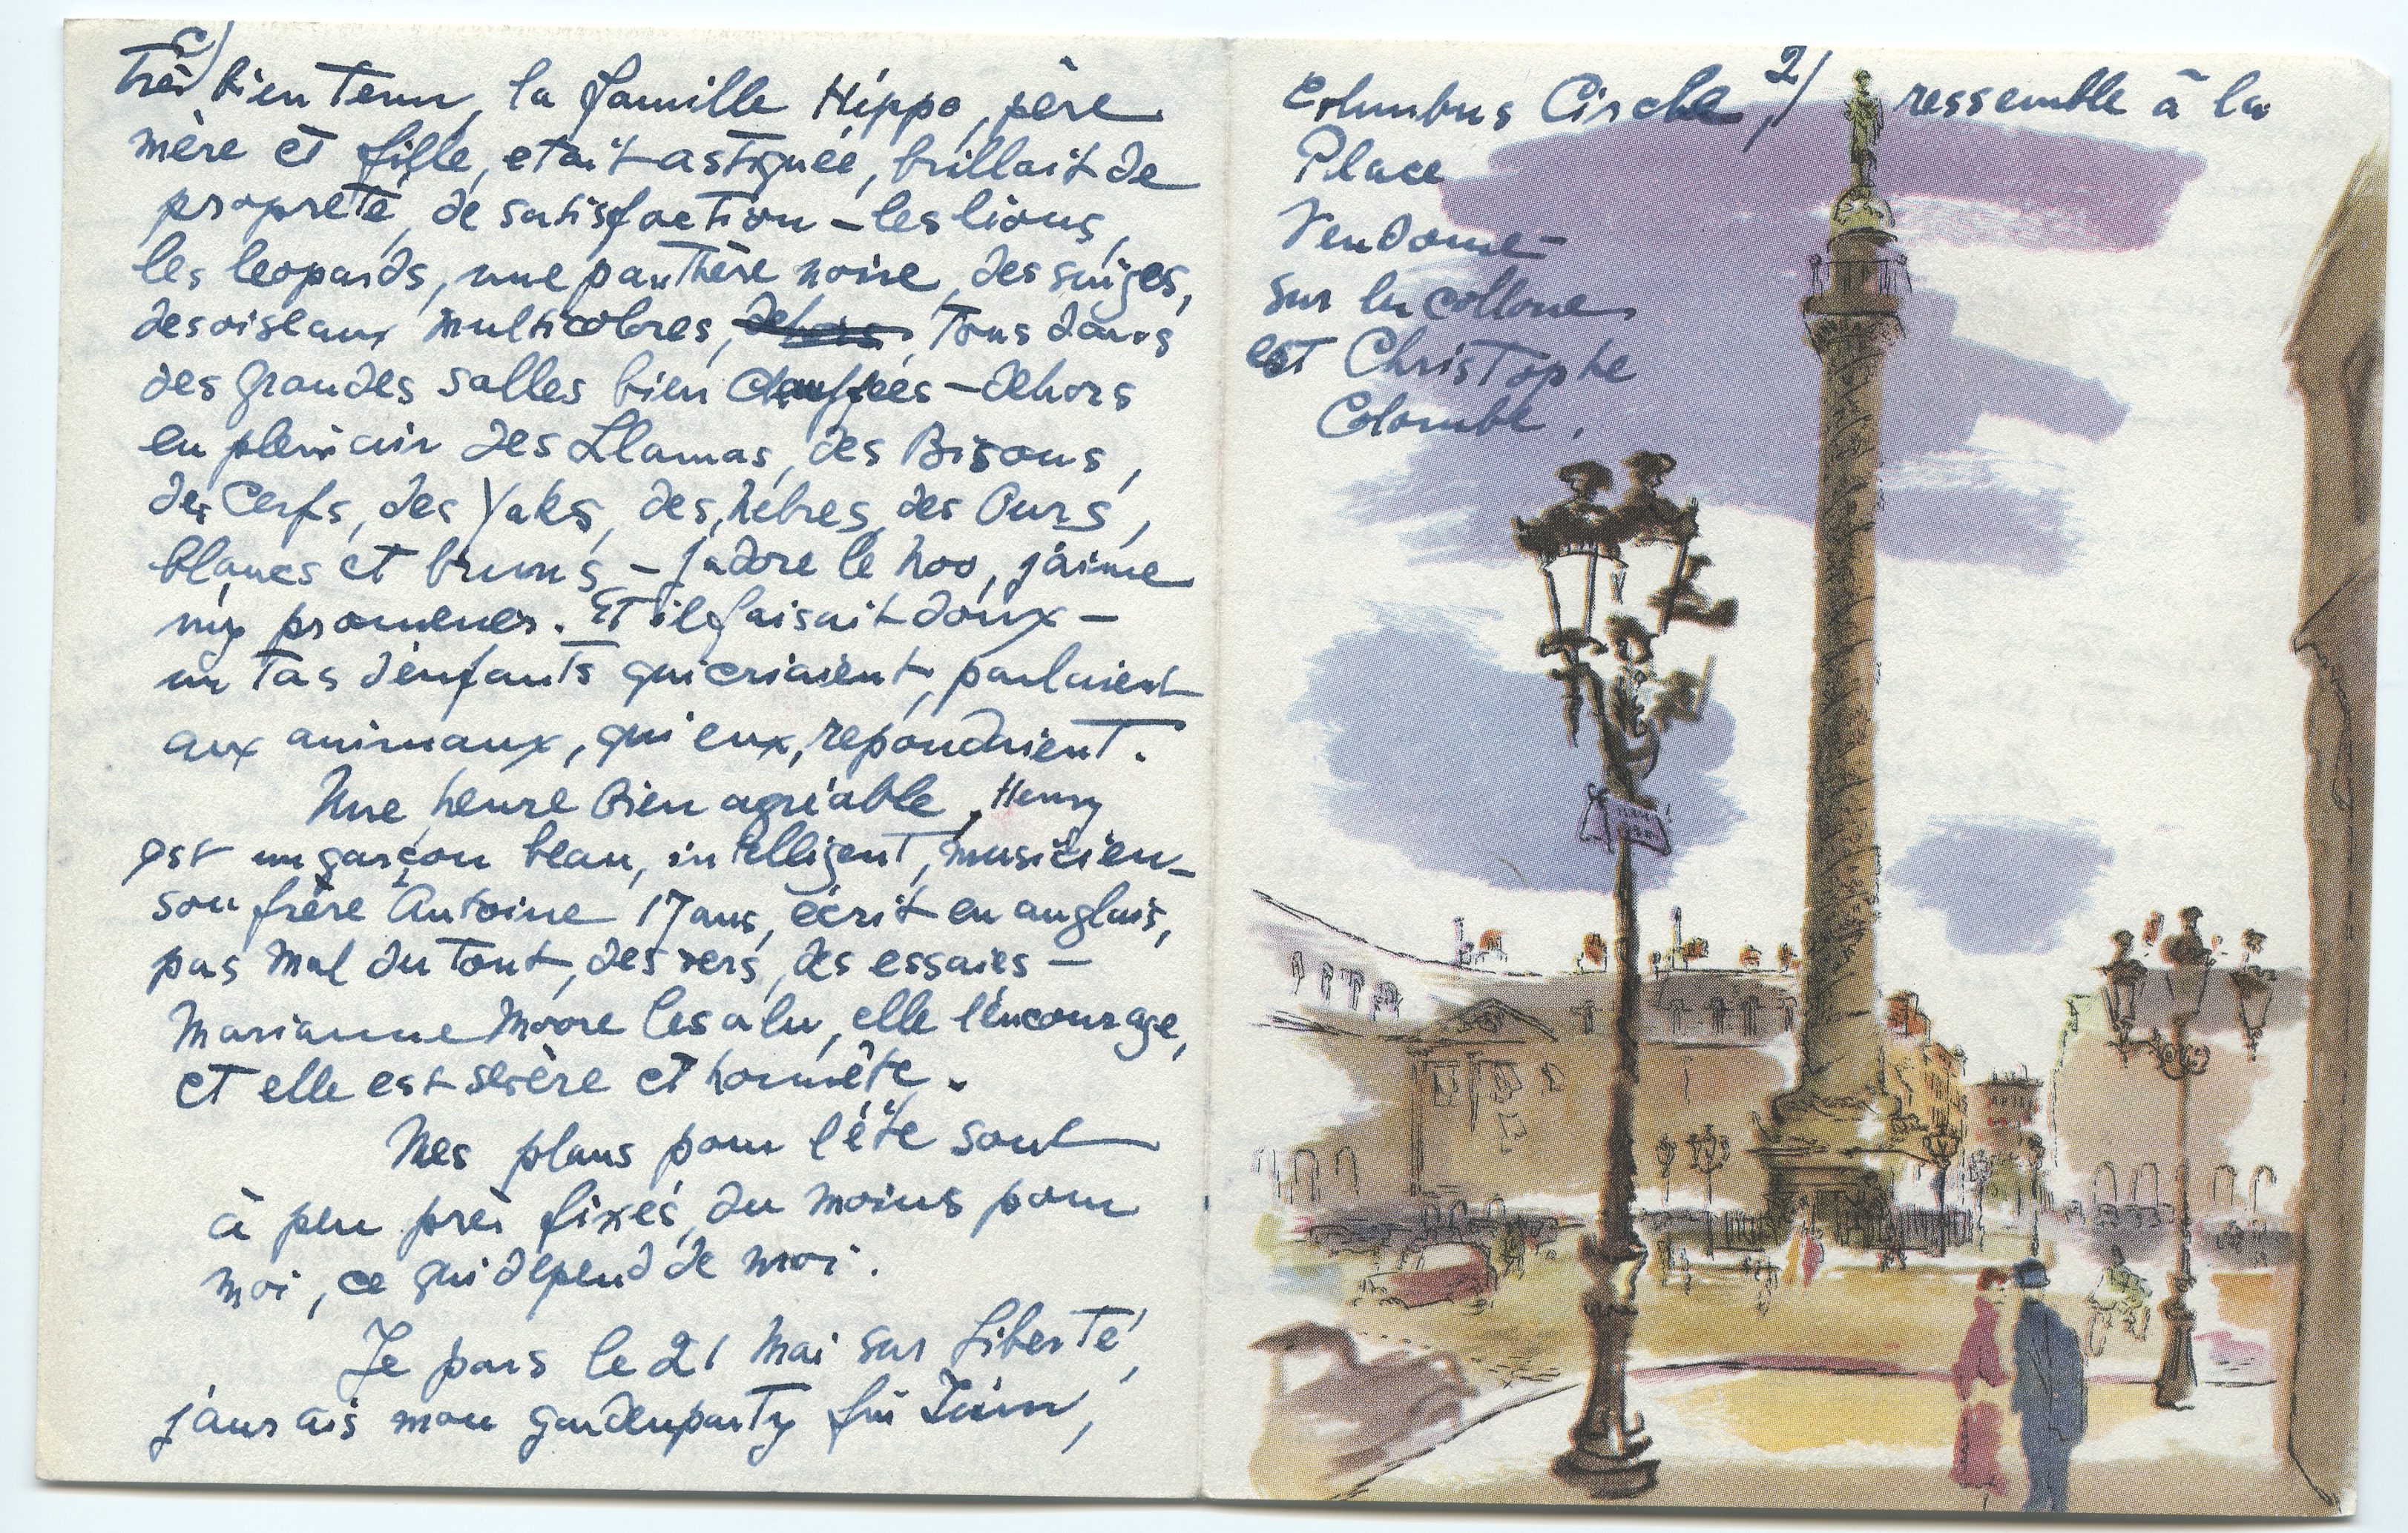 c)
très bien tenu, la famille Hippo, père
mère et fille, etait astiquée, brillait de
propreté, de satisfaction – les lions,
les leopards, une panthère noire, des singes,
des oiseaux multicolores, dehors, tous dans
des grandes salles bien chauffées – dehors
en plein air des Llamas, des Bisons,
des Cerfs, des Yaks, des zèbres, des Ours,
blancs et bruns – j'adore le zoo, j'aime
m'y promener. Et il faisait doux –
un tas d'enfants qui criaient, parlaient
aux animaux, qui eux, repondaient.
Une heure bien agréable. Henry
est un garçon beau, intelligent, musicien –
son frère Antoine 17 ans, écrit en anglais,
pas mal du tout, des vers, des essaies –
Marianne Moore les a lu, elle l'encourage,
et elle est sevère et honnête.
Mes plans pour l'été sont
à peu près fixés, du moins pour
moi, ce qui depend de moi.
Je pars le 21 Mai sur Liberté,
j'aurais mon gardenparty fin Juin,
2/
Columbus Circle, ressemble à la
Place
Vendome –
sur la collone
est Christophe
Colombe.